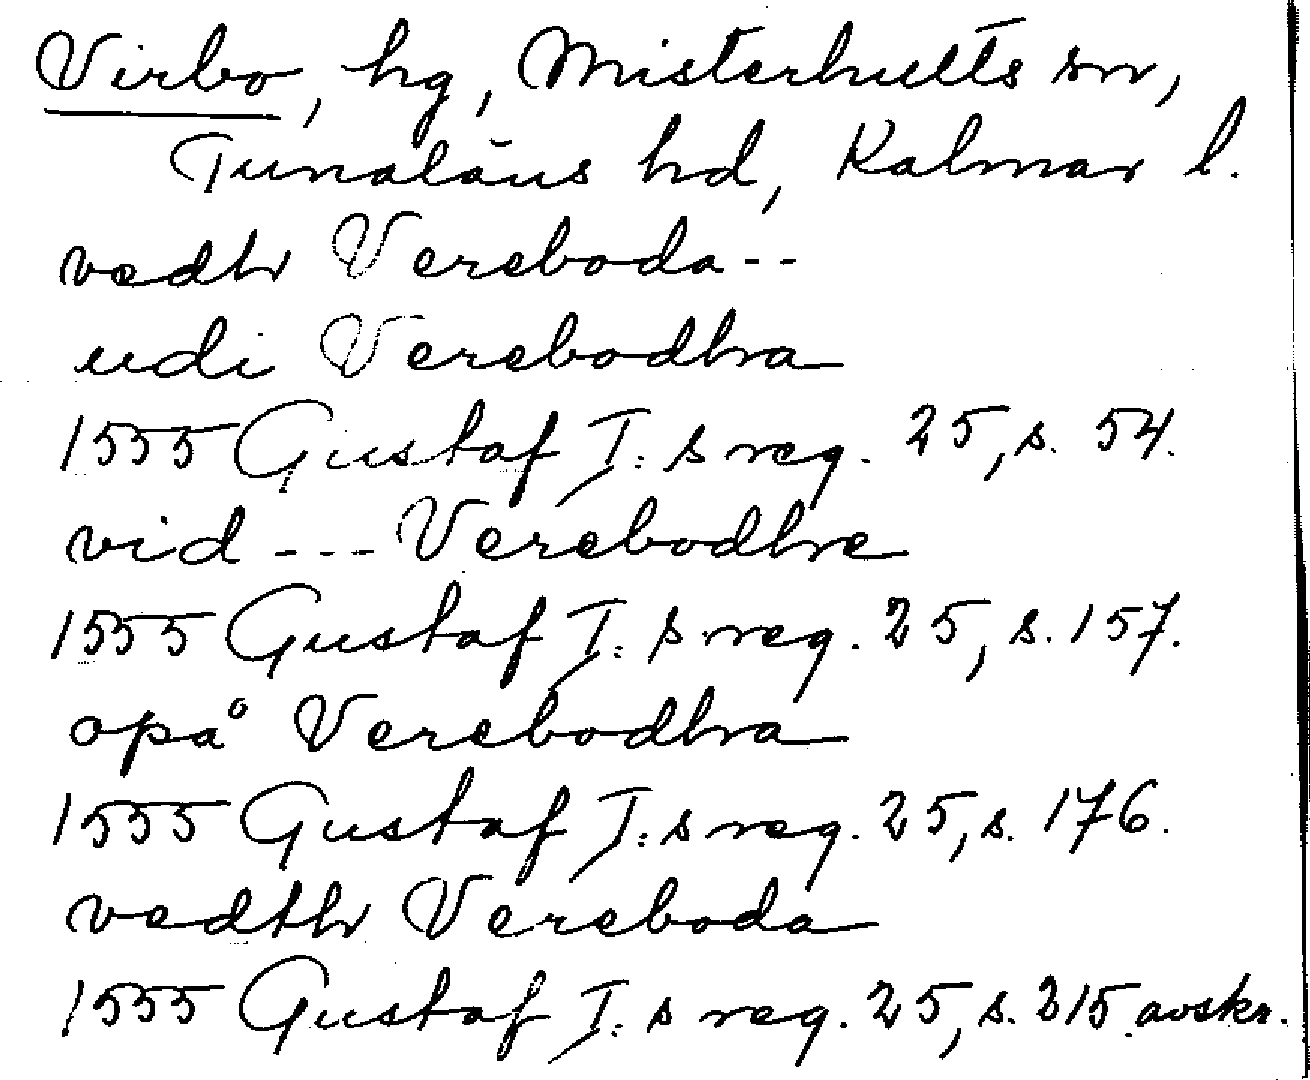 Virbo, hg, Misterhults sn,
Tunaläns hd, Kalmar l.
vedh Vereboda--
udi Verebodha
1555 Gustaf I:s reg. 25, s. 54.
vid --- Verebodhe
1555 Gustaf I:s reg. 25, s. 157.
opå Verebodha
1555 Gustaf I:s reg. 25, s. 176.
vedth Vereboda
1555 Gustaf I:s reg. 25, s. 315 avskr.